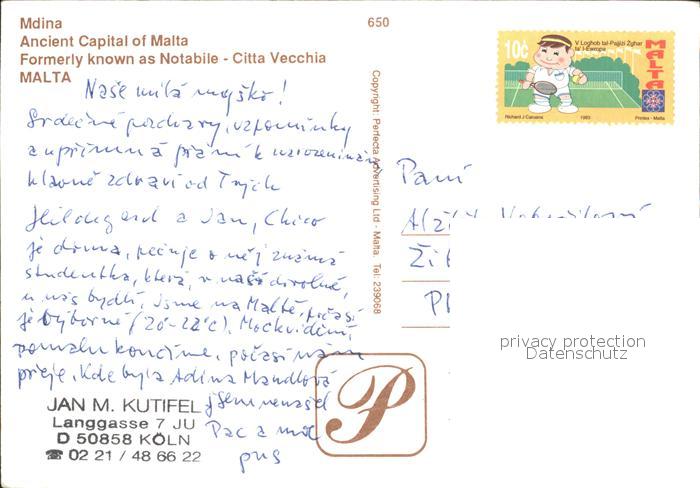 Mdina
Ancient Capital of Malta
Formerly known as Notabile - Citta Vecchia
MALTA
650
10c
V Logħob tal-Pajjiżi Żgħar
ta' l-Ewropa
MALTA
Richard J Caruana 1993 Printex - Malta
Copyright: Perfecta Advertising Ltd - Malta. Tel: 239068
Naše milá
Srdečné pozdravy, vzpomínky
a upřímná přání k narozeninám
hlavně zdraví od Tvých
Hildegard a Jan, Chico
je doma, pečuje o něj známá
studentka, která, v naší
u nás bydlí, jsme na Maltě, počasí
je výborné (20-22°C).
pomalu končíme, počasí nám
přeje. Kde byla Adina Mandlová
jsem nenašel
Pac a
pus
Paní
JAN M. KUTIFEL
Langgasse 7 JU
D 50858 KÖLN
☎ 02 21 / 48 66 22
P
privacy protection
Datenschutz